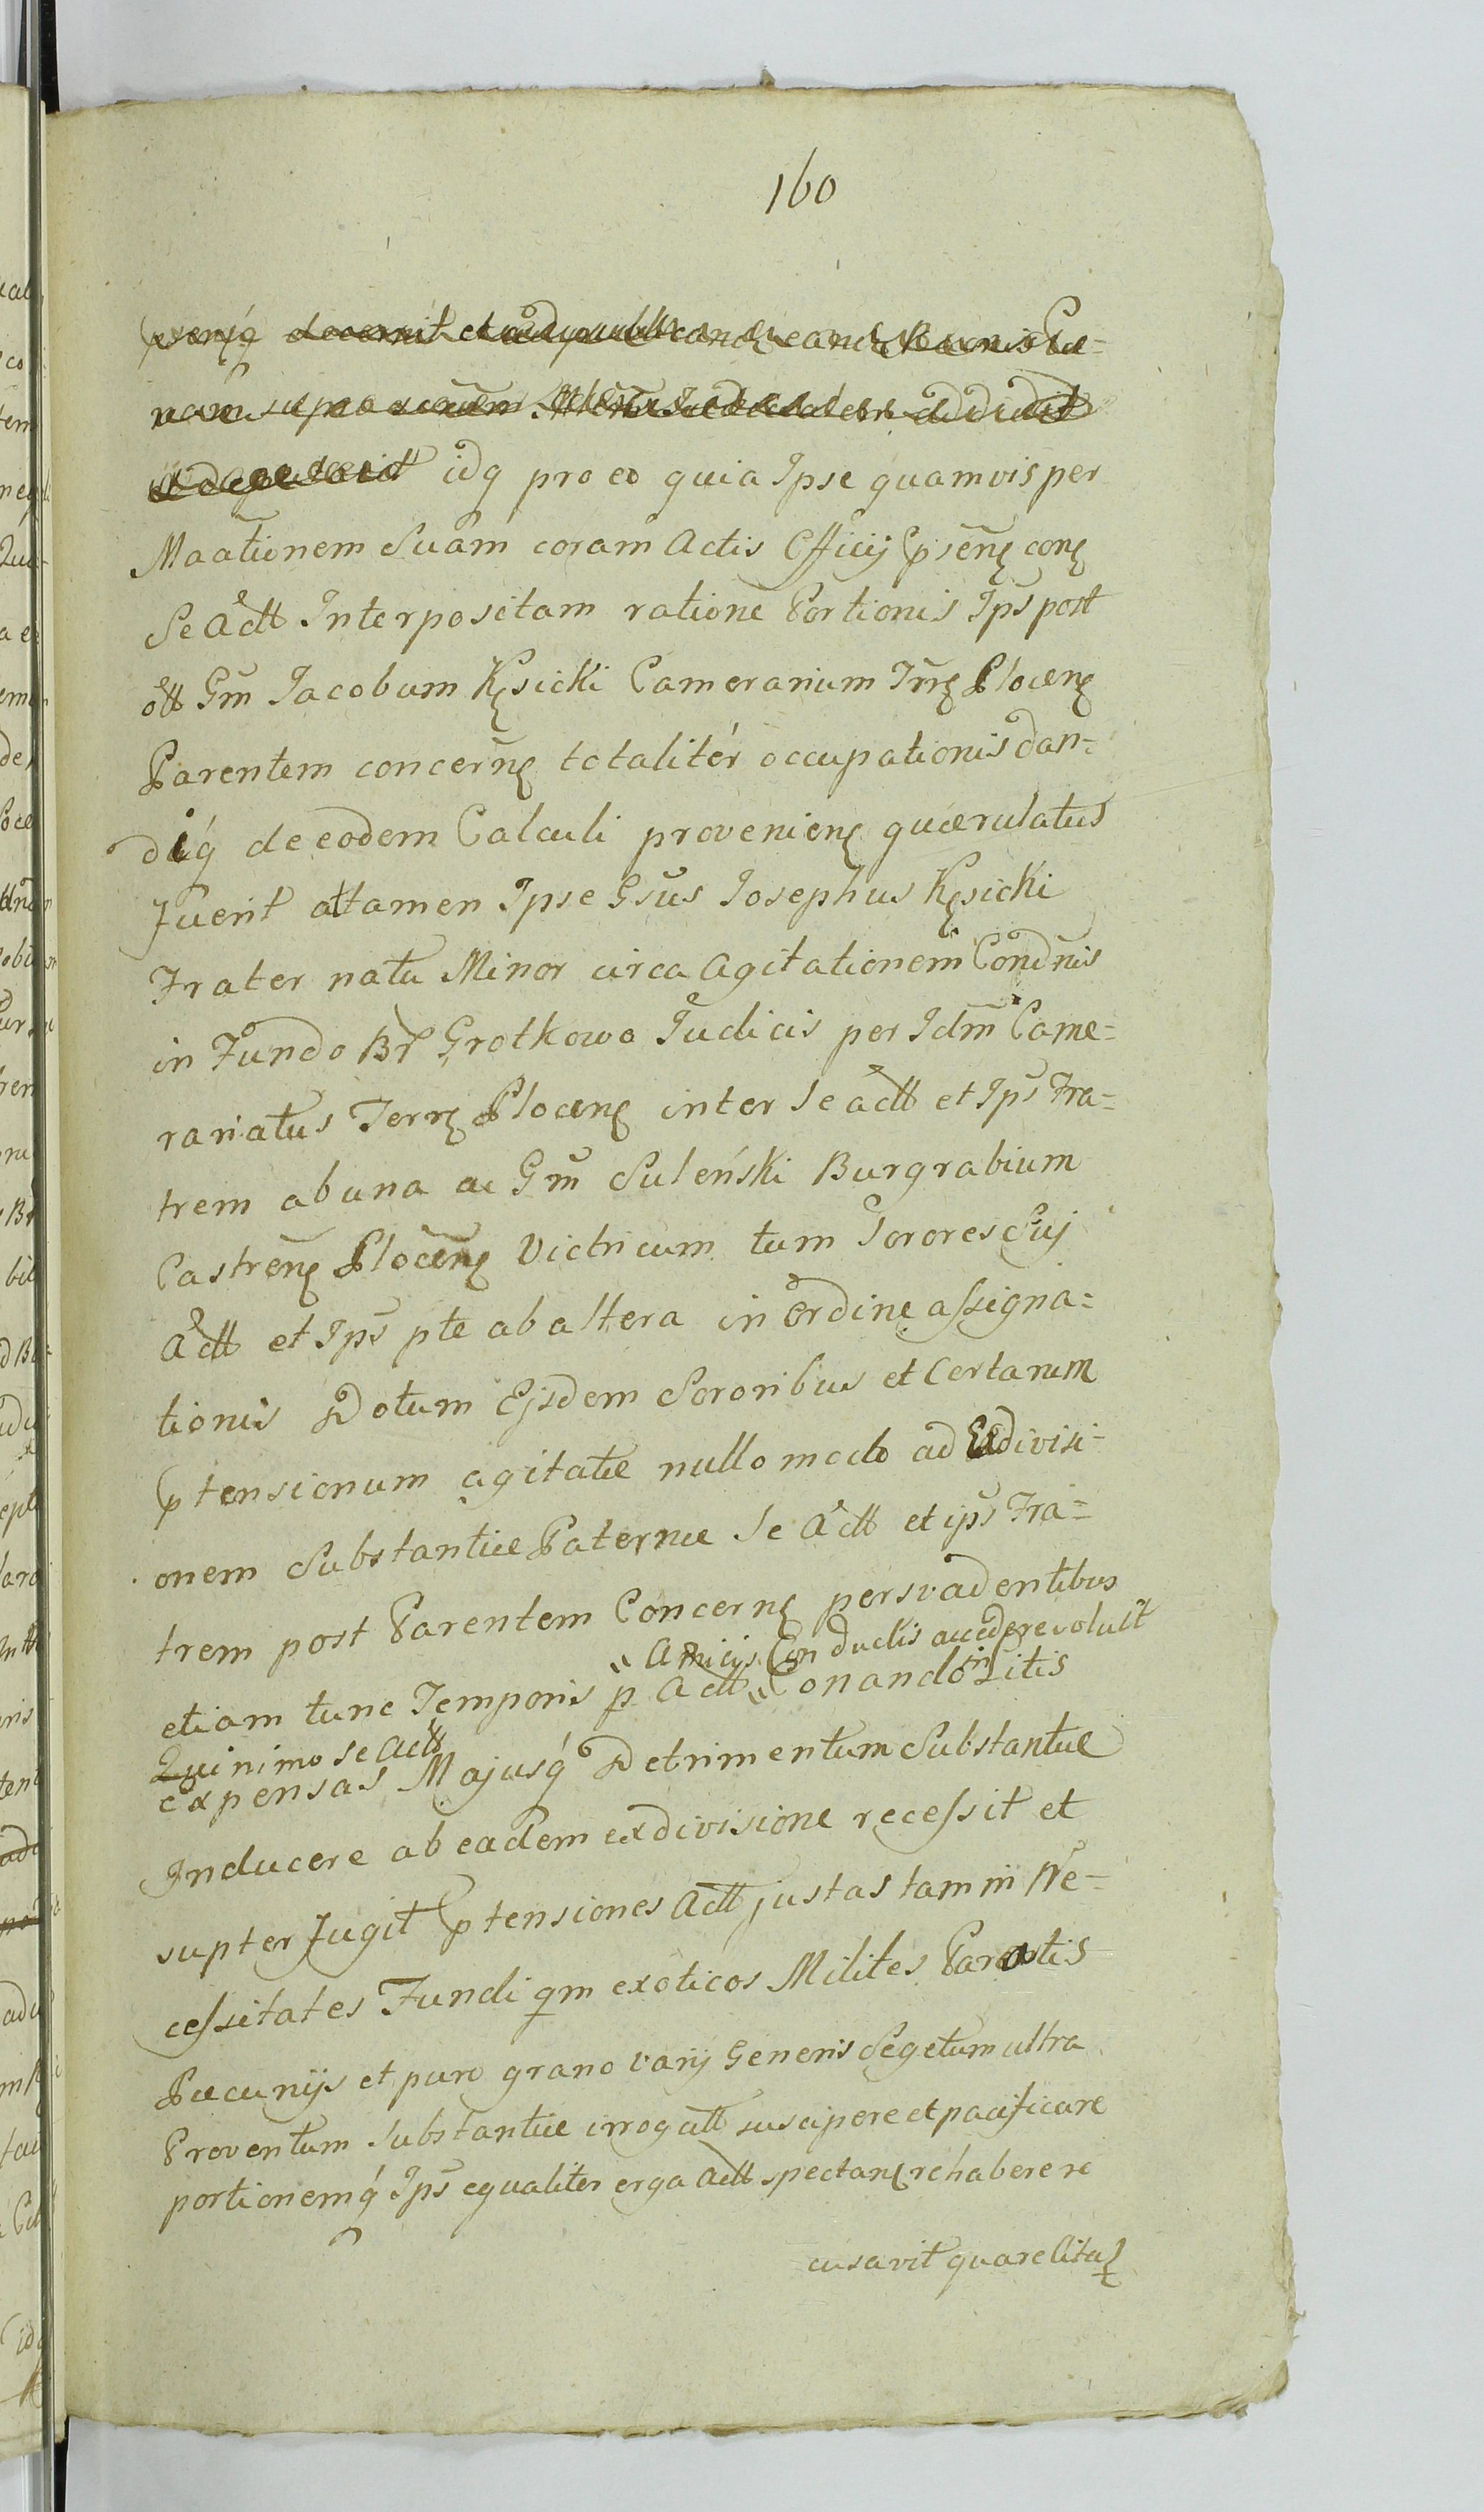 160
idq pro eo quia Ipse quamvis per
Maãtionem Suam coram Actis Officij pseñ conę
Se Actt Interpositam ratione Portionis Ips post
ott Gm Jacobum Kęsicki Camerarium Trrę Plocenę
Parentem concernę totalitér occupationis dan=
diq́ de eodem Calculi provenienę quærulatus
fuerit attamen Ipse Gsus Josephus Kęsicki
Frater natu Minor circa agitationem Condnis
in Fundo Br Grotkowo Judicis per Idm Came=
rariatus Terrę Plocenę inter se actt et Ips Fra=
trem ab una ac Gm Suleński Burgrabium
Castrenę Plocenę Victricum tum Sorores Suj
Actt et Ips pte ab altera in ordine assigna=
tionis Dotum Ejsdem Sororibus et Certarum
ptensionum agitatæ nullo modo ad Exdivisi=
onem Substantiæ Paternæ Se Actt et ips Fra=
trem post Parentem Concernę persvadentibus
Amicijs Conductis accedere voluit
etiam tunc Temporis p Actt Conando in Litis
Quinimo se Actt
expensas Majusq́ Detrimentum Substantiæ
Inducere ab eadem exdivisione recessit et
supterfugit ptensiones Actt justas tam in Ne=
cessitates Fundi qm exoticos Milites Paratis
Pæcunijs et puro grano varij Generis Segetum ultra
Proventum Substantiæ irrogatt suscipere et pacificare
portionemq́ Ips equaliter erga Actt spectanę rehabere re
cusavit quare litaę